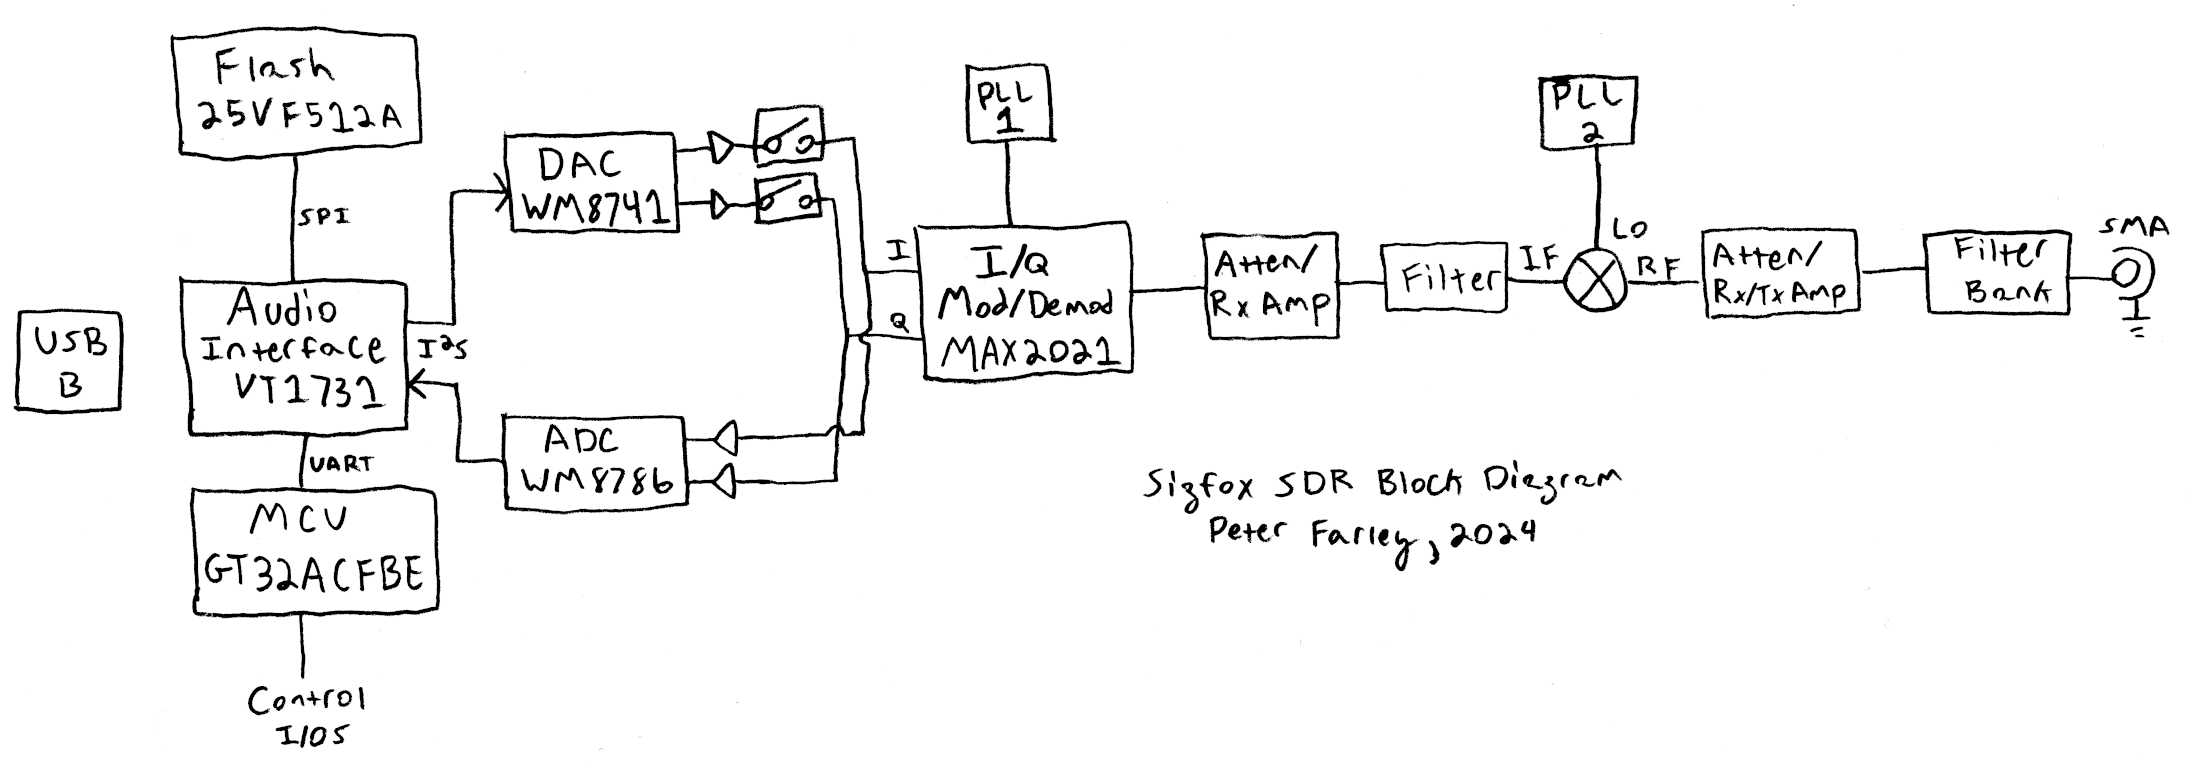 Flash
25VF512A
SPI
USB
B
Audio
Interface
VT1731
I²S
UART
MCU
GT32ACFBE
Control
I/OS
DAC
WM8741
ADC
WM8786
PLL
1
I
Q
I/Q
Mod/Demod
MAX2021
Atten/
Rx Amp
Filter
IF
PLL
2
LO
RF
Atten/
Rx/Tx Amp
Filter
Bank
SMA
Sigfox SDR Block Diagram
Peter Farley, 2024